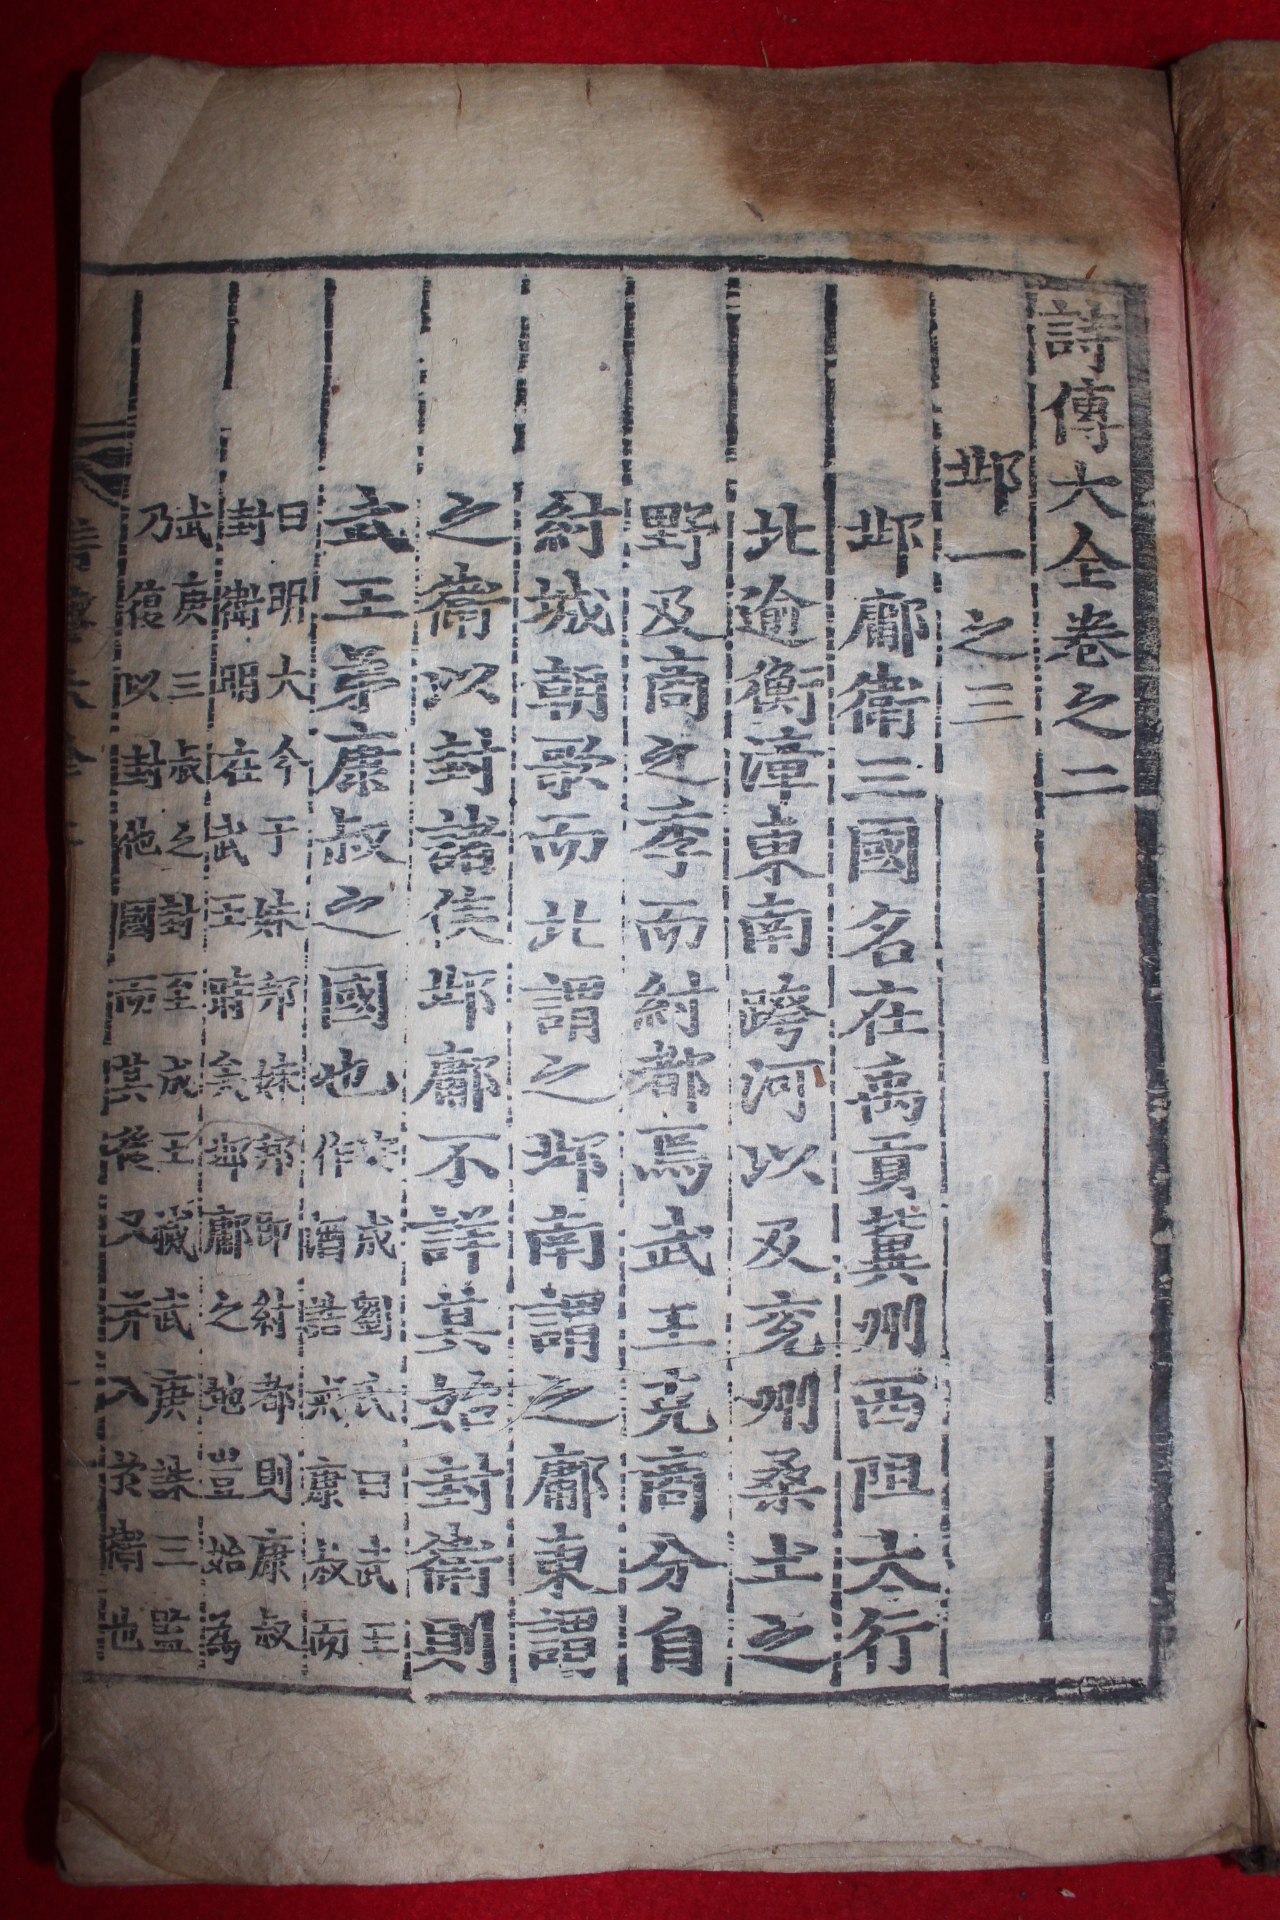 詩傳大全卷之二
邶一之三
邶鄘衛三國名在禹貢冀州西阻太行
北逾衡漳東南跨河以及兗州桑土之
野及商之季而紂都焉武王克商分自
紂城朝歌而北謂之邶南謂之鄘東謂
之衛以封諸侯邶鄘不詳其始封衛則
武王弟康叔之國也
安成劉氏曰武王
作酒誥戒康叔而
曰明大今于妹邦妹邦即紂都則康叔
封衛明在武王時矣邶鄘之地豈始為
武庚三叔之封至成王滅武庚誅三監
乃復以封他國而其後又并入於衛也